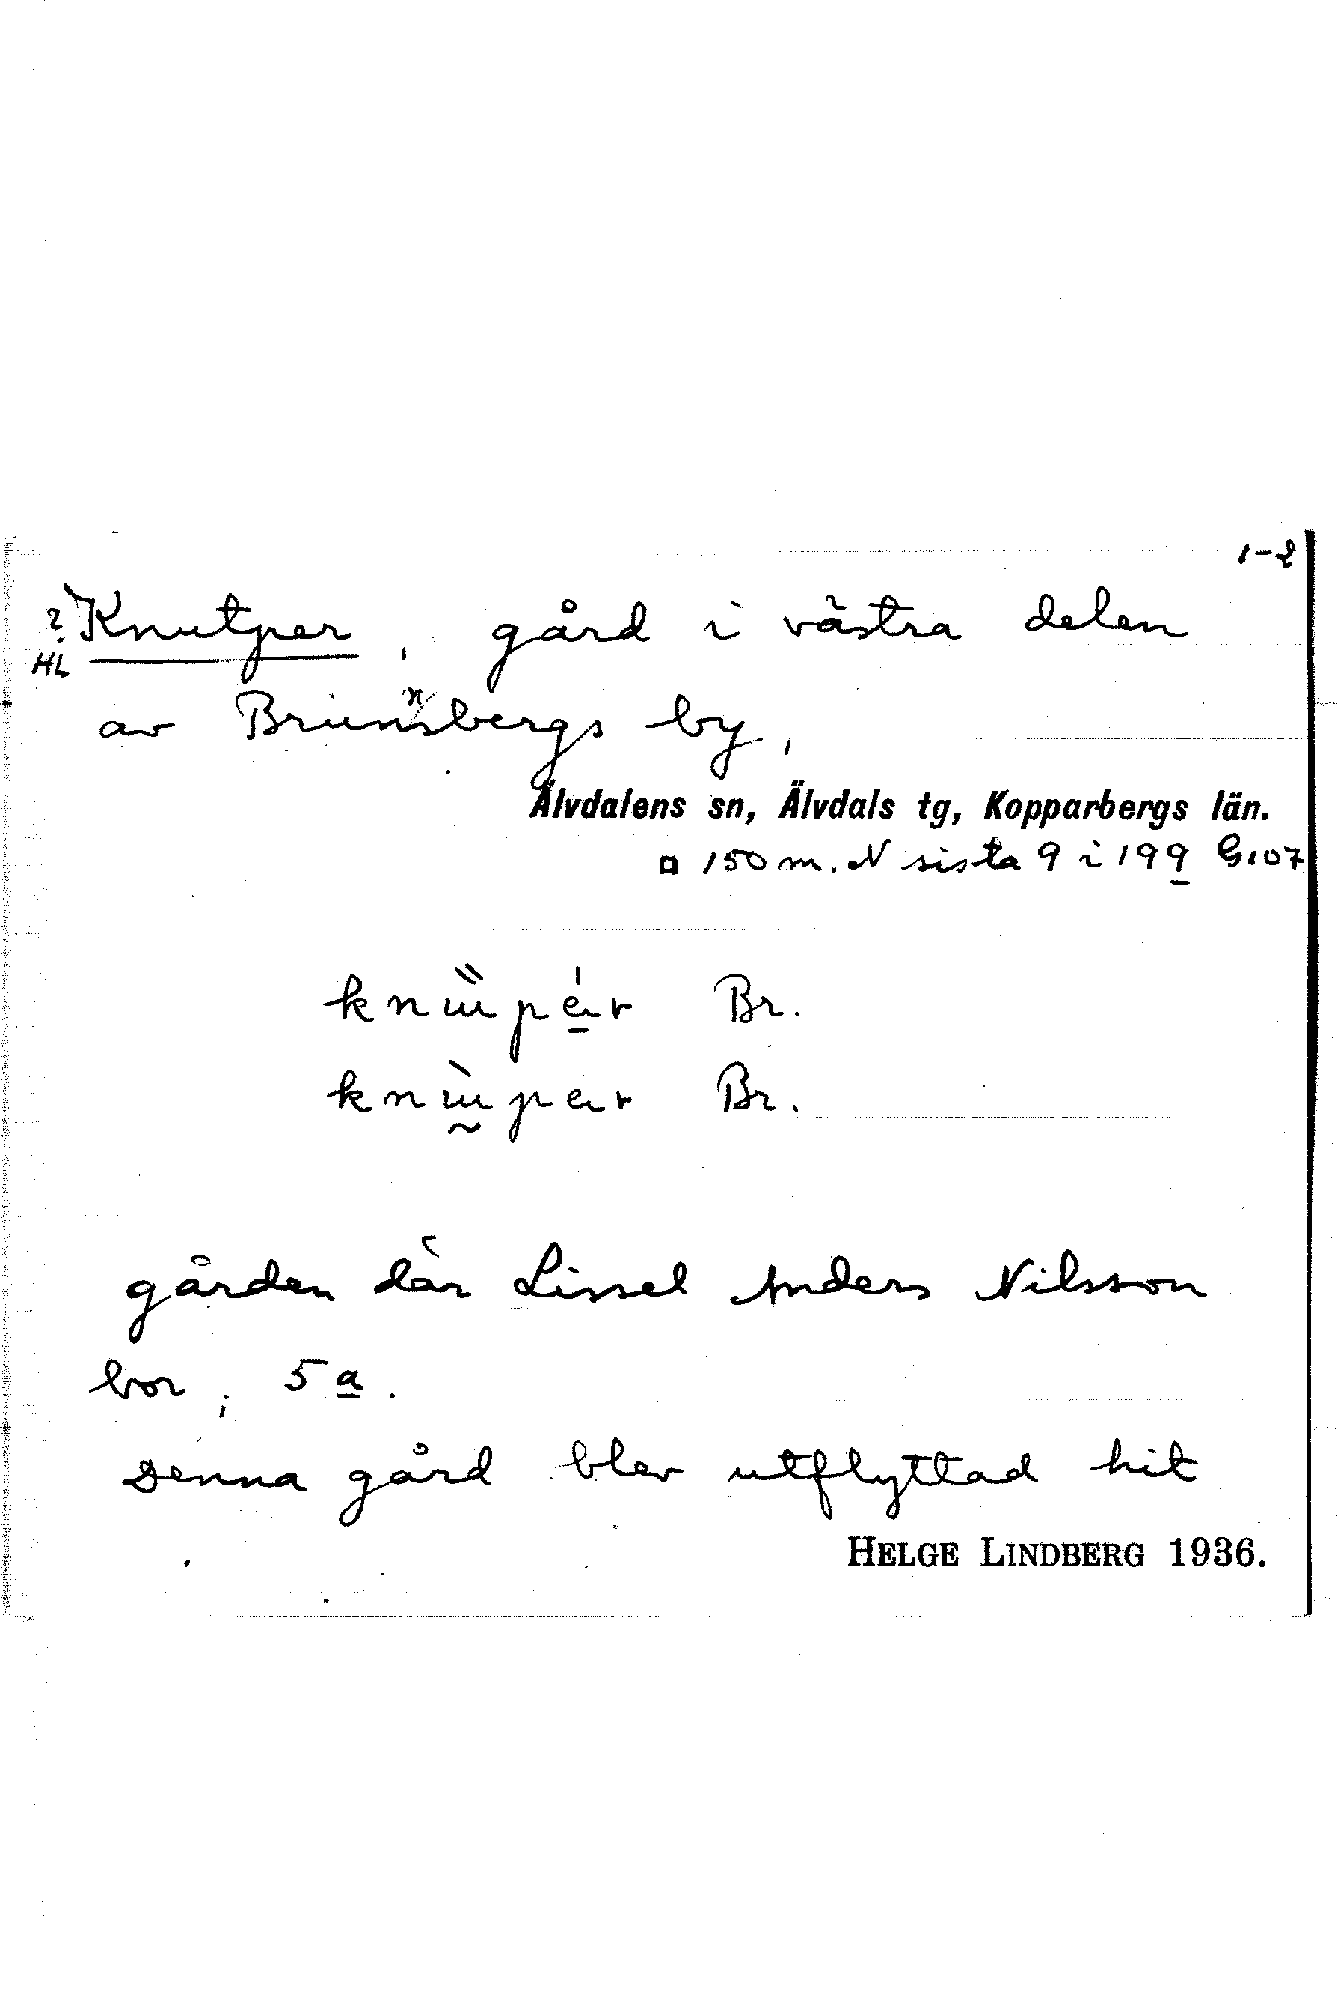 1-2
? Knutper, gård i västra delen
HL
av Brunnsbergs by,
Älvdalens sn, Älvdals tg, Kopparbergs län.
¤ 150 m. N sista 9 i 199 G.107
Br.
Br.
gården där Lissel Anders Nilsson
bor; 5 a.
Denna gård blev utflyttad hit
HELGE LINDBERG 1936.